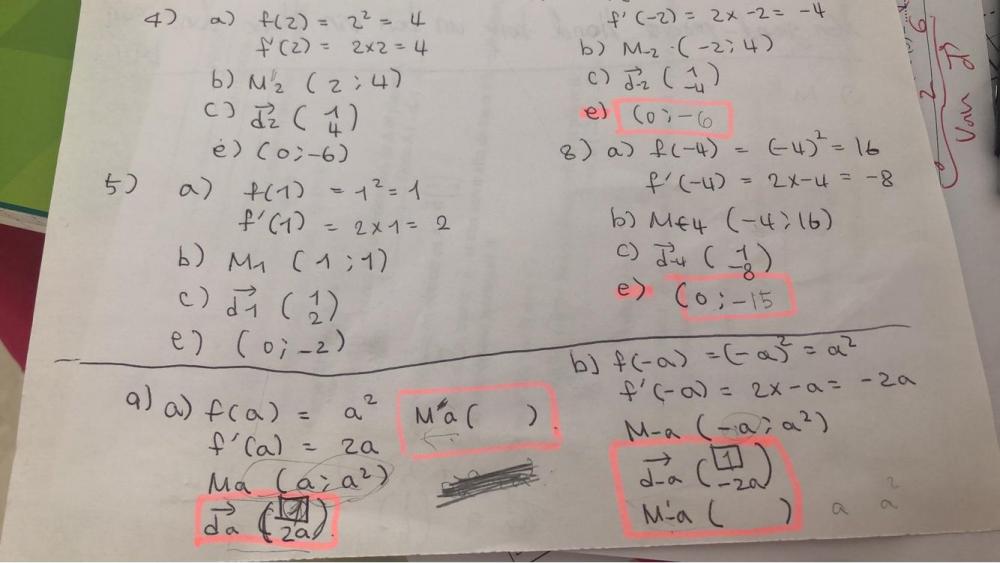 4) a) f(2) = 2² = 4
f'(2) = 2x2 = 4
b) M'2 (2; 4)
c) d⃗2 (1 4)
e) (0;-6)
5) a) f(1) = 1² = 1
f'(1) = 2x1 = 2
b) M1 (1;1)
c) d⃗1 (1 2)
e) (0;-2)
f'(-2) = 2x-2 = -4
b) M-2 (-2; 4)
c) d⃗-2 (1 -4)
e) (0;-6
8) a) f(-4) = (-4)² = 16
f'(-4) = 2x-4 = -8
b) M-4 (-4;16)
c) d⃗-4 (1 -8)
e) (0;-15
9) a) f(a) = a²
M'a ( )
f'(a) = 2a
Ma (a; a²)
d⃗a (1 2a)
b) f(-a) = (-a)² = a²
f'(-a) = 2x-a = -2a
M-a (-a; a²)
d⃗-a (1 -2a)
M'-a ( )
a a²
6
2